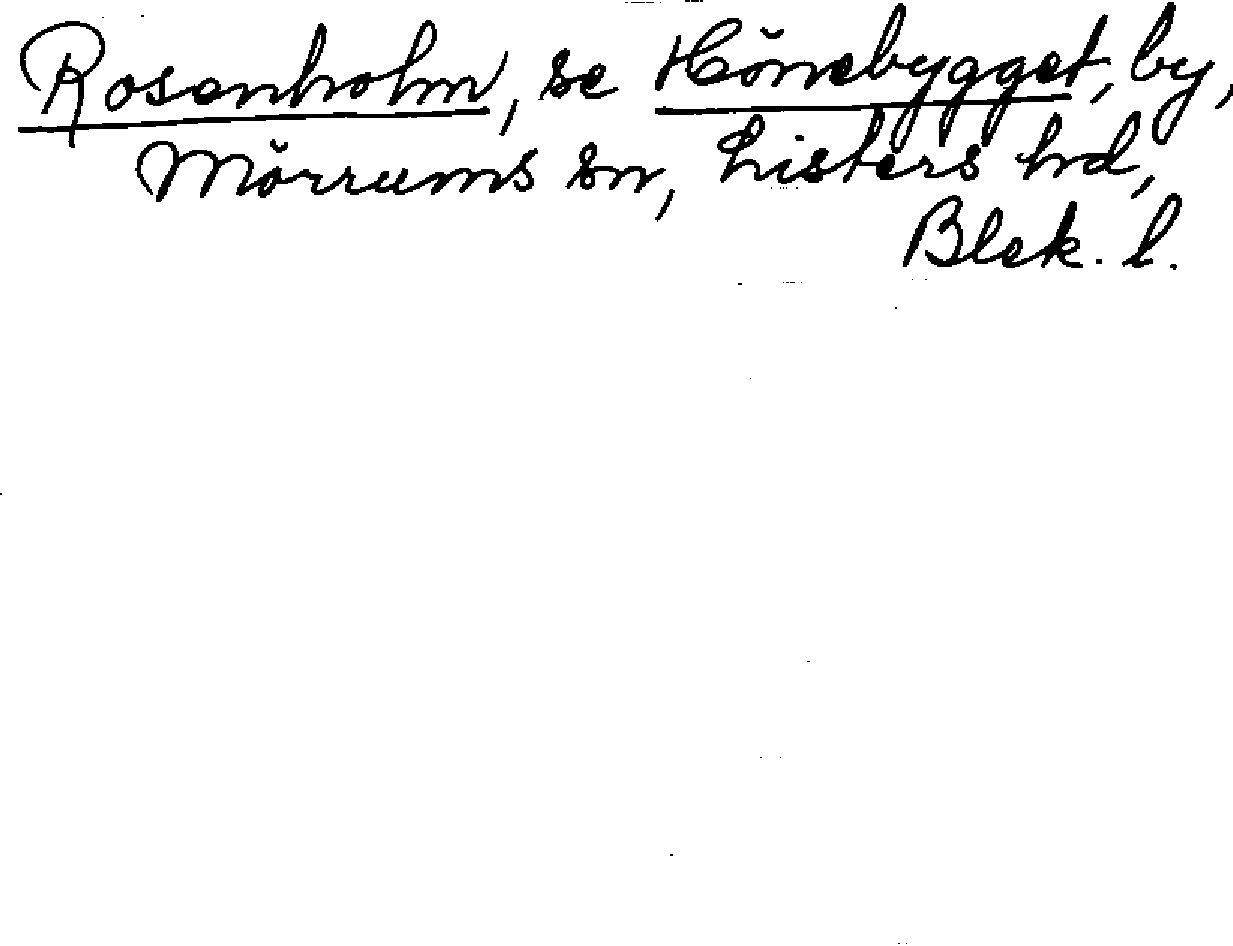 Rosenholm, se Hönebygget, by,
Mörrums sn, Listers hd,
Blek. l.